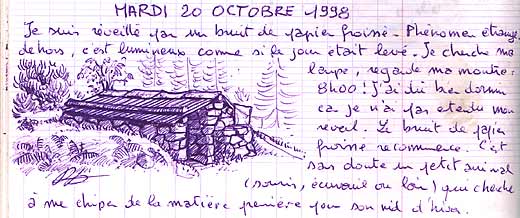 MARDI 20 OCTOBRE 1998
Je suis réveillé par un bruit de papier froissé. Phénomène étrange
dehors, c'est lumineux comme si le jour était levé. Je cherche ma
lampe, regarde ma montre :
8h00 ! J'ai dû bien dormir
car je n'ai pas entendu mon
reveil. Le bruit de papier
froissé recommence. C'est
sans doute un petit animal
(souris, écureuil ou loir) qui cherche
à me chiper de la matière première pour son nid d'hiver.